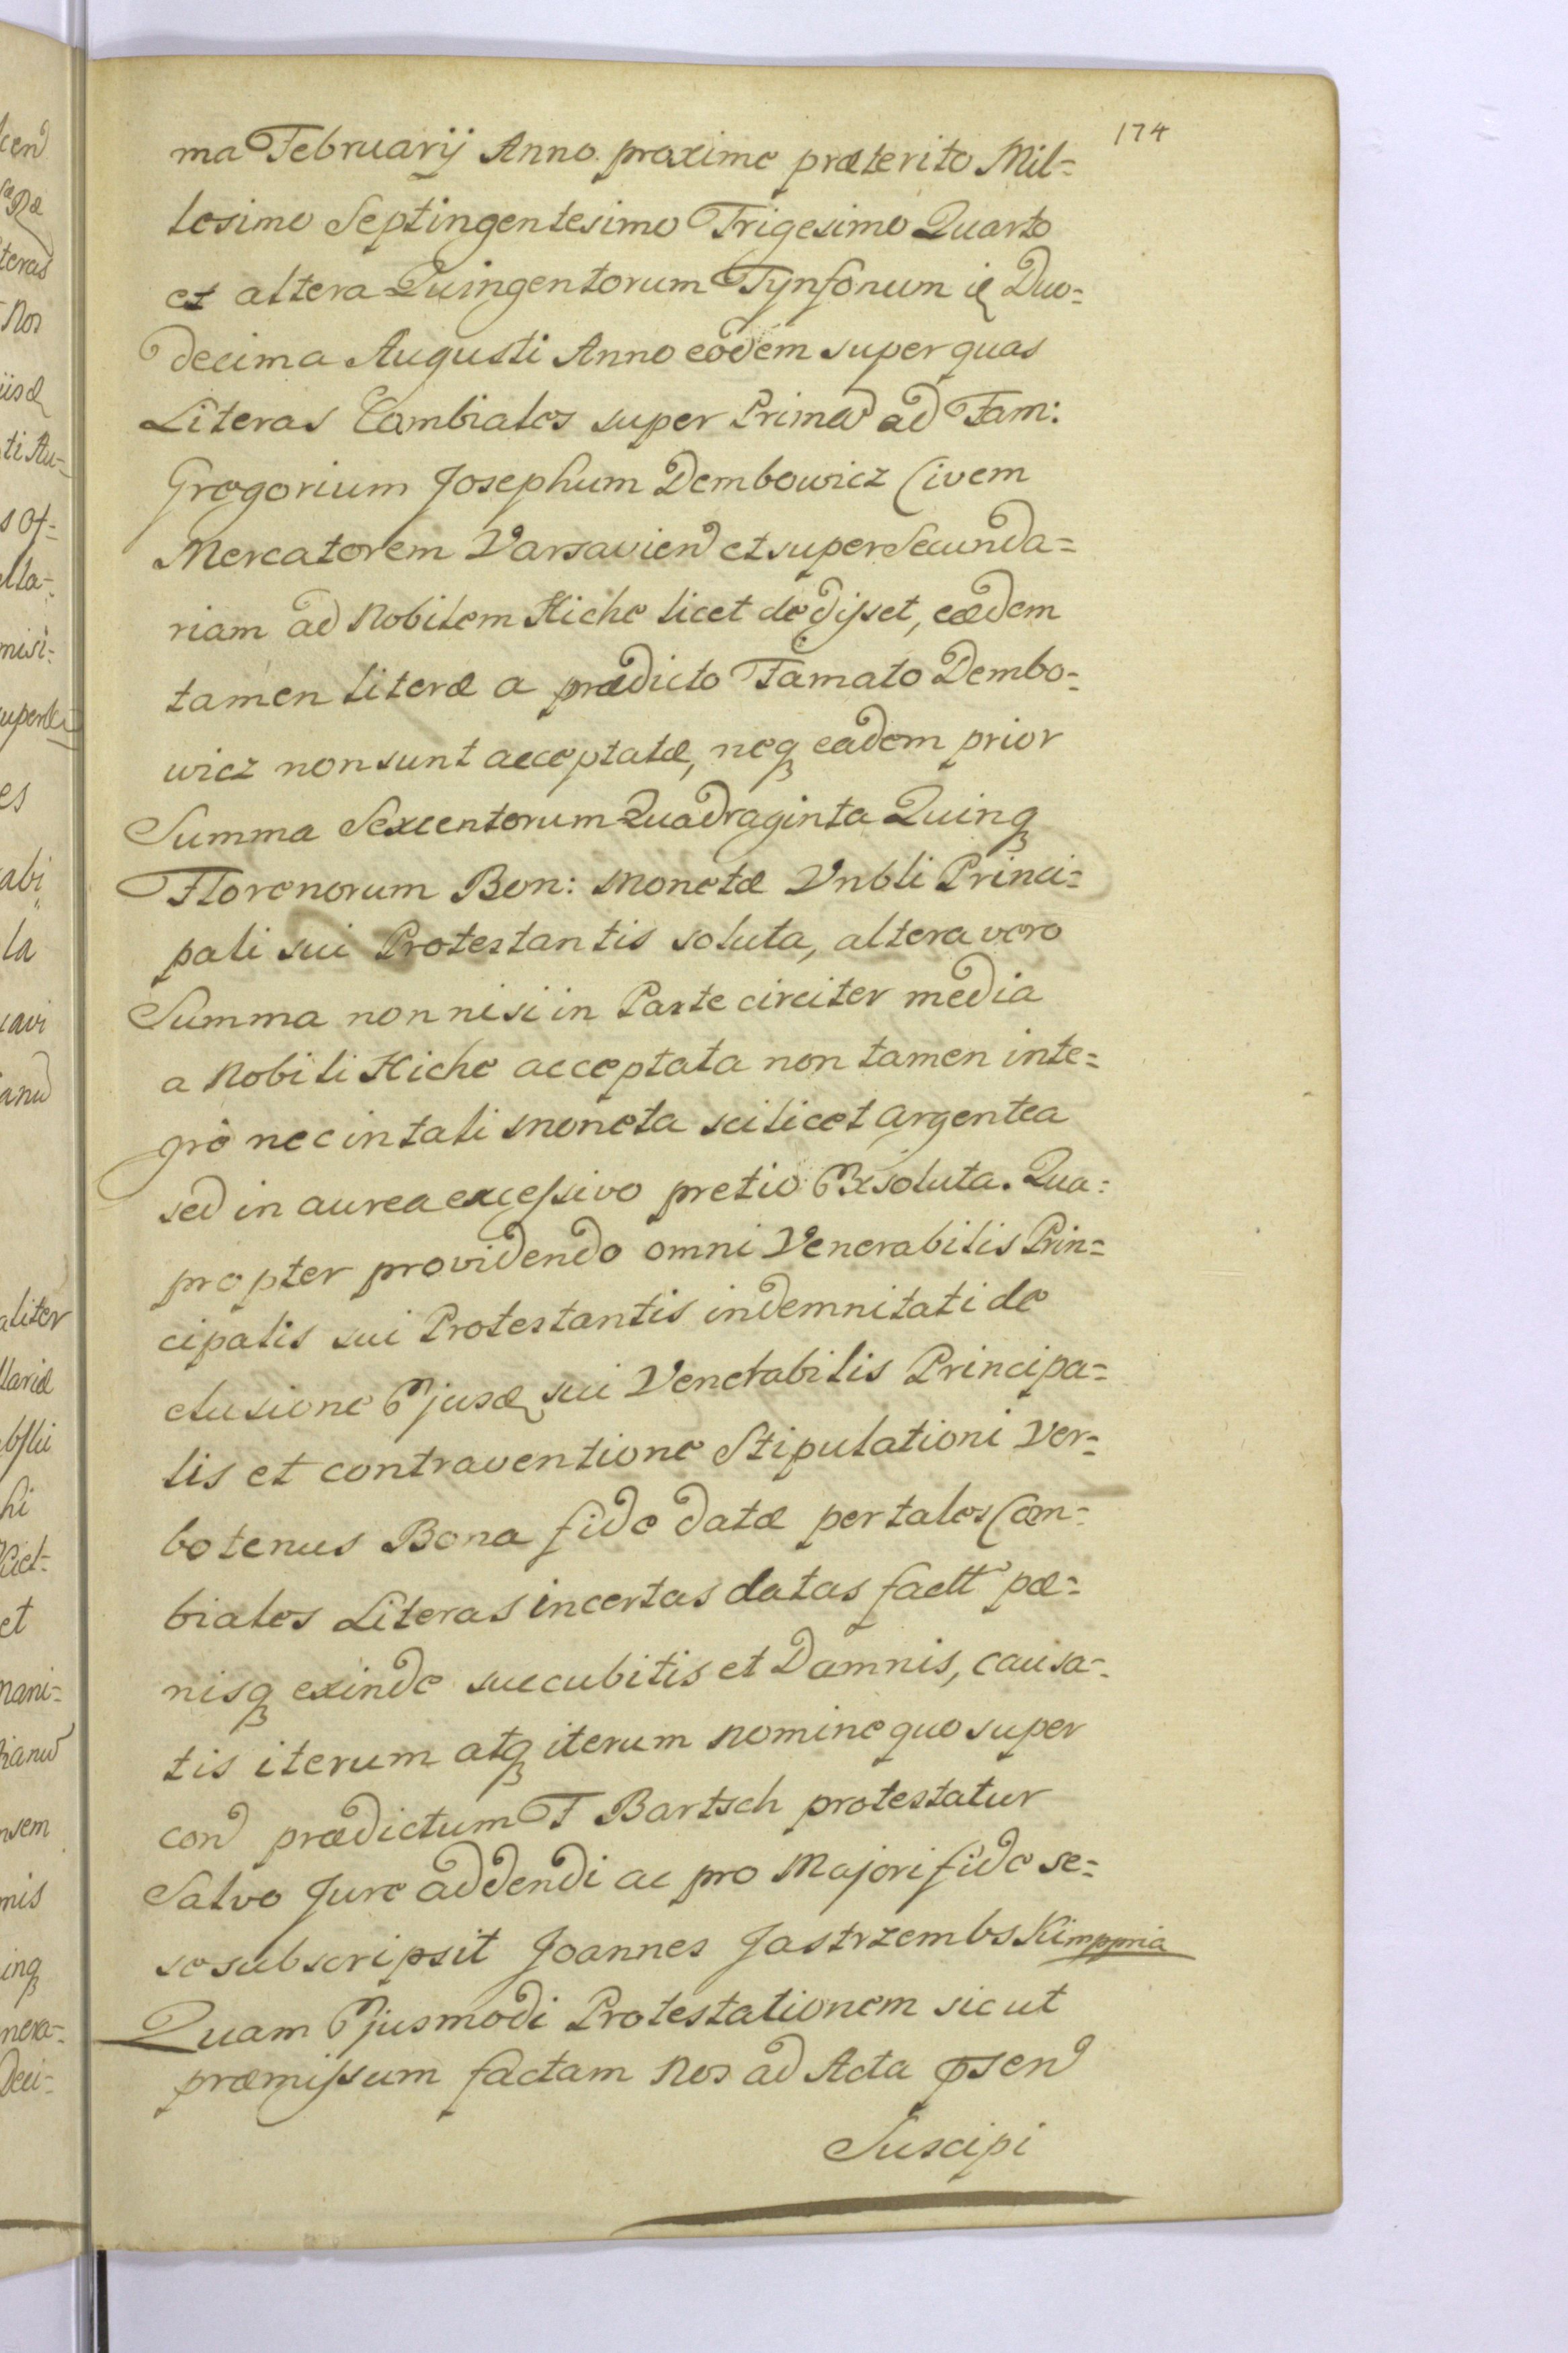 174
ma Februarij Anno proxime præterito Mil=
lesimo Septingentesimo Trigesimo Quarto
et altera Quingentorum Tynfonum Duo=
decima Augusti Anno eodem super quas
Literas Cambiales super Prima ad Fam:
Gregorium Josephum Dembowicz Civem
Mercatorem Varsavien et super Secunda=
riam ad Nobilem Hiche licet dedisset, eædem
tamen literæ a prædicto Famato Dembo=
wicz non sunt acceptatæ, neq eadem prior
Summa Sexcentorum Quadraginta Quinq
Florenorum Bon: Monetæ Vnbli Princi=
pali sui Protestantis soluta, altera vero
Summa non nisi in Parte circiter media
a Nobili Hiche acceptata non tamen inte=
gro nec in tali moneta scilicet argentea
sed in aurea excessivo pretio Exsoluta. Qua=
propter providendo omni Venerabilis Prin=
cipalis sui Protestantis indemnitati de
elusione Ejusd sui Venerabilis Principa=
lis et contraventione Stipulationi Ver=
botenus Bona fide datæ per tales Cam=
biales Literas incertas datas factt pæ=
nisq exinde succubitis et Damnis, causa=
tis iterum atq iterum nomine quo super
con prædictum F Bartsch protestatur
Salvo Jure addendi ac pro Majori fide se=
se subscripsit Joannes Jastrzembski mppria
Quam Ejusmodi Protestationem sicut
præmissum factam Nos ad Acta psen
Suscipi